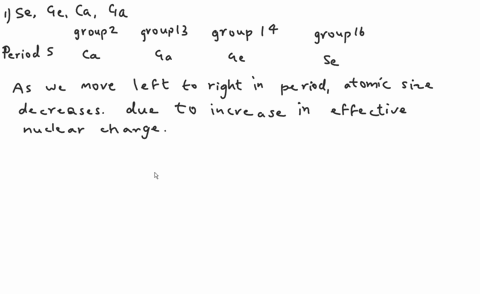 1) Se, Ge, Ca, Ga
group 2 group 13 group 14 group 16
Period 5 Ca Ga Ge Se
As we move left to right in period, atomic size
decreases. due to increase in effective
nuclear charge.